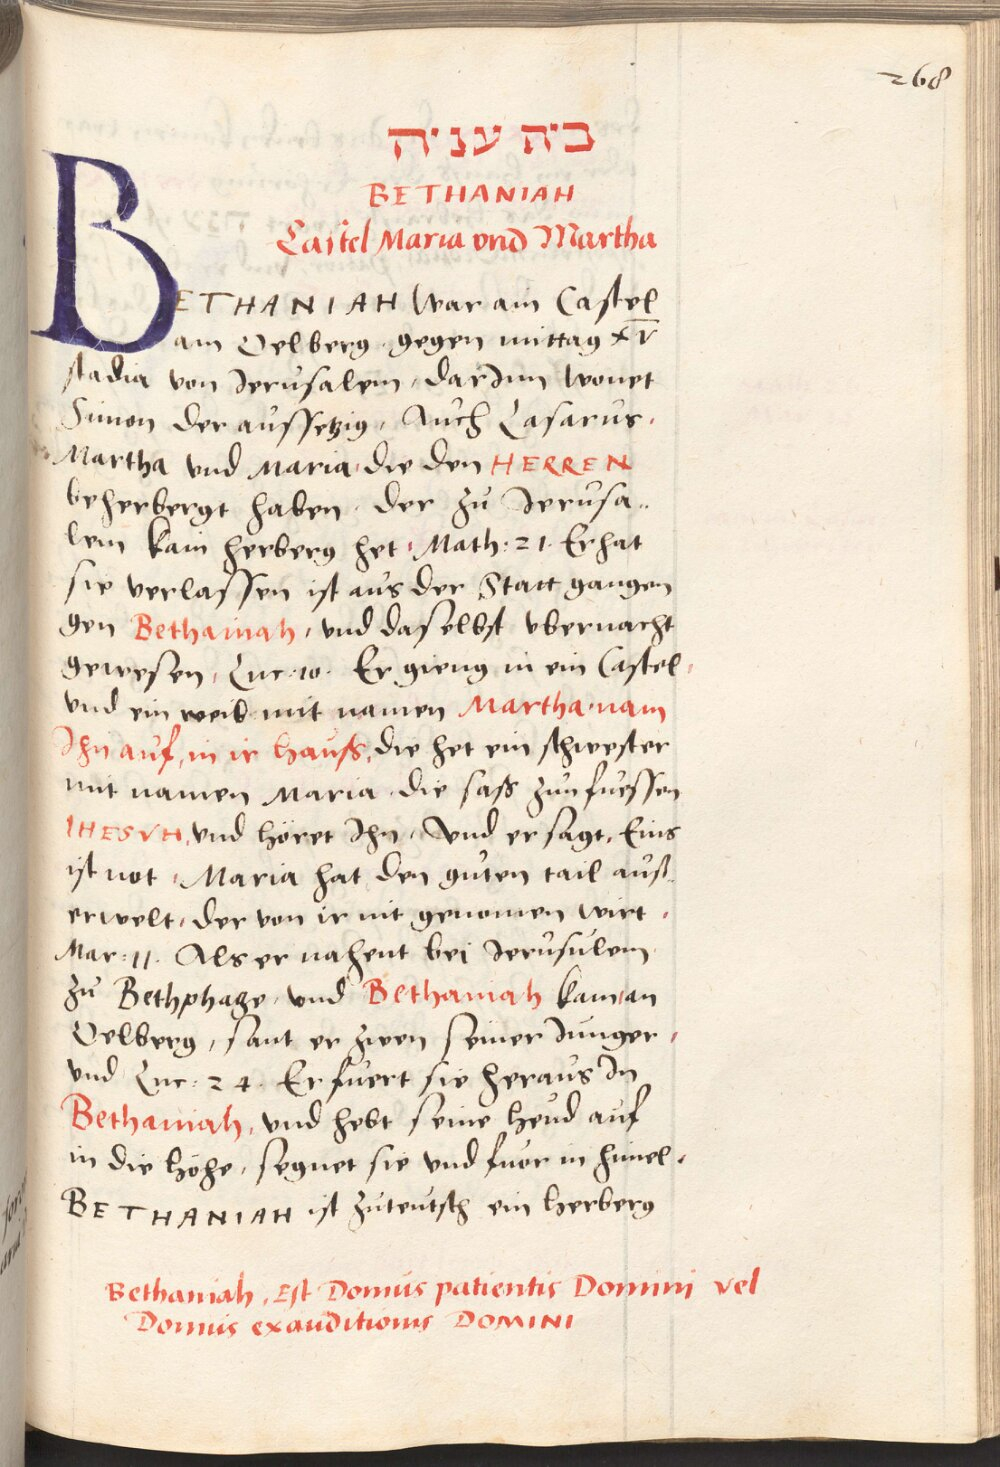 268
בית עניה
BETHANIAH
Castel Maria vnd Martha
BETHANIAH War ain Castel
am Oelberg gegen mittag XV
stadia von Jerusalem, darInn wonet
Simon der aussetzig, Auch Lasarus.
Martha vnd Maria die den HERREN
beherbergt haben. der zu Jerusa„
lem kain herberg het, Math: 21. Er hat
sie verlassen ist aus der Statt gangen
gen Bethaniah, vnd daselbst vbernacht
gewesen, Luc: 10. Er gieng in ein Castel,
vnd ein weib mit namen Martha nam
Ihn auf, in ir hauß, die het ein schwester
mit namen Maria die saß zun fuessen
IHESVH, vnd höret Ihn, Vnd er sagt, Eins
ist not, Maria hat den guten tail auß„
erwelt, der von ir nit genomen wirt,
Mar: 11. Als er nahent bei Jerusulem
zu Bethphage, vnd Bethaniah kam, an
Oelberg, sant er zwen seiner Junger,
vnd Luc: 24. Er fuert sie heraus In
Bethaniah, vnd hebt seine hend auf
in die höhe, segnet sie vnd fuor in himel.
BETHANIAH ist zuteutsch ein herberg
Bethaniah, Est Domus patientis Domini vel
Domus exauditionis DOMINI